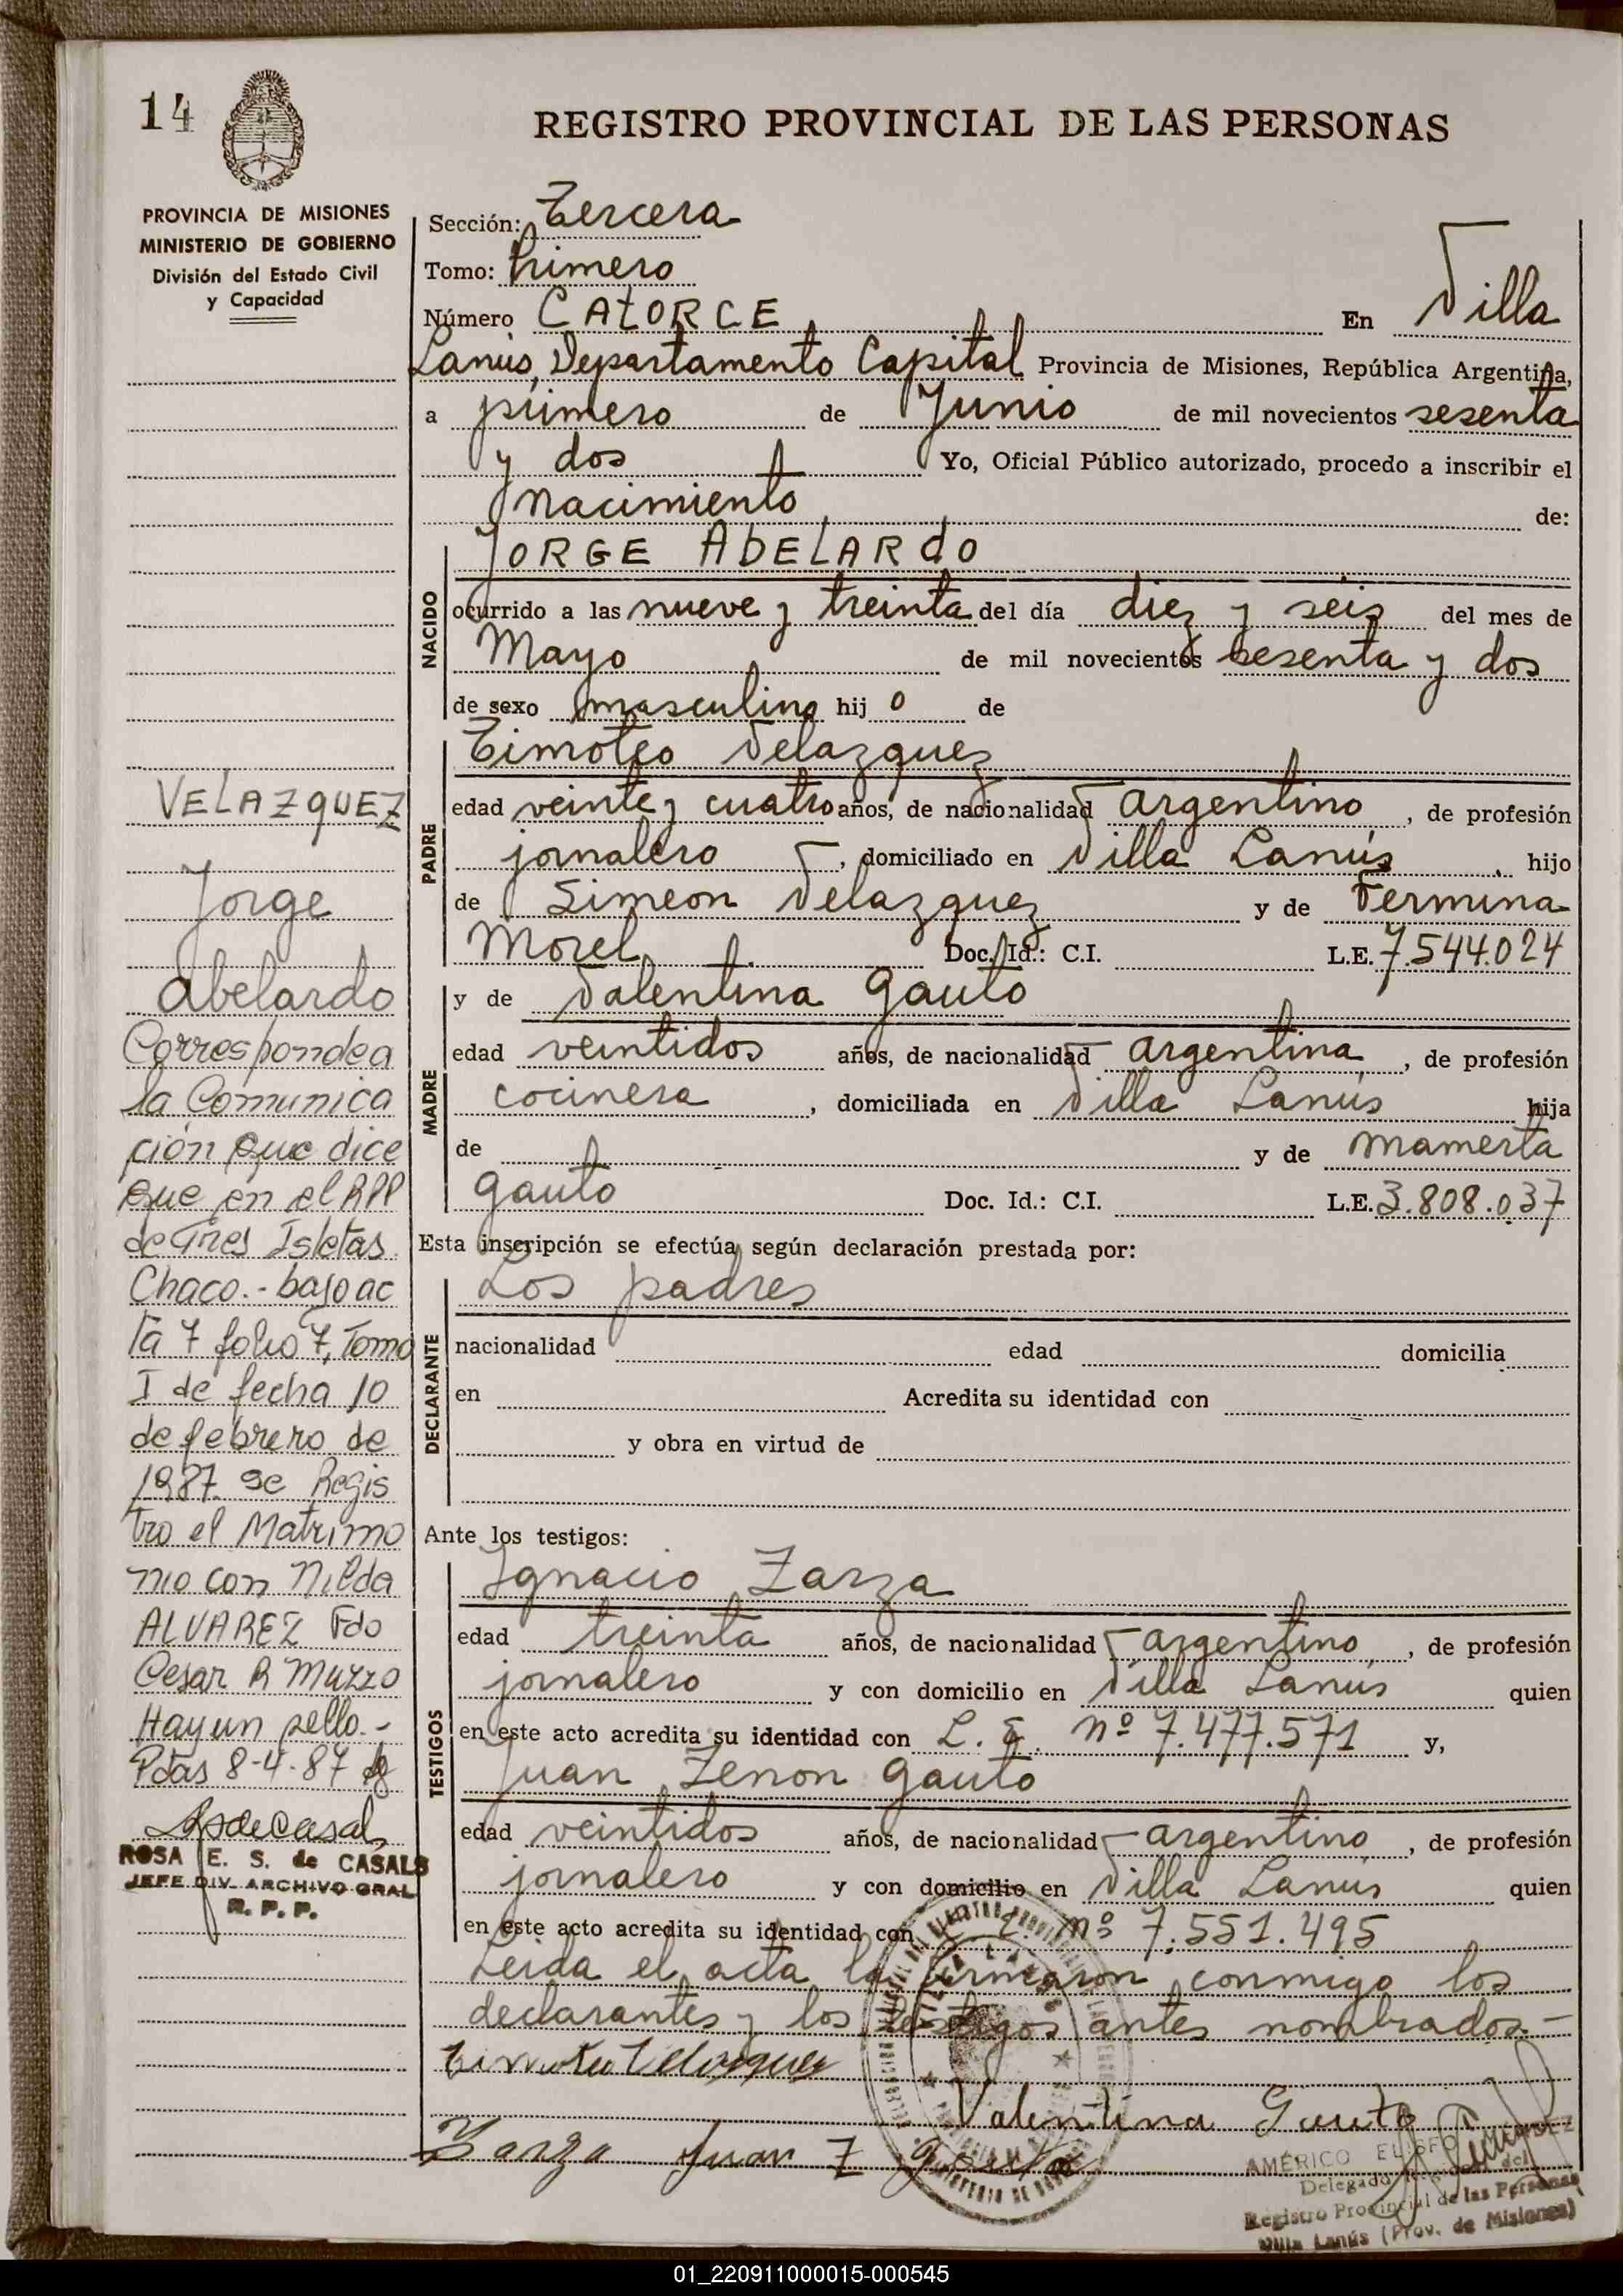 14
REGISTRO PROVINCIAL DE LAS PERSONAS
PROVINCIA DE MISIONES
MINISTERIO DE GOBIERNO
División del Estado Civil
y Capacidad
Sección: Tercera
Tomo: Primero
Número CATORCE En Villa
Lanús, Departamento Capital Provincia de Misiones, República Argentina,
a primero de Junio de mil novecientos sesenta
y dos Yo, Oficial Público autorizado, procedo a inscribir el
nacimiento de:
NACIDO
JORGE ABELARDO
ocurrido a las nueve y treinta del día diez y seis del mes de
Mayo de mil novecientos sesenta y dos
de sexo masculino hij o de
PADRE
Timoteo Velazquez
edad veinte y cuatro años, de nacionalidad argentino, de profesión
jornalero, domiciliado en Villa Lanús hijo
de Simeon Velazquez y de Fermina
Morel Doc. Id.: C.I. L.E. 7.544.024
MADRE
y de Valentina Gauto
edad veintidos años, de nacionalidad argentina, de profesión
cocinera, domiciliada en Villa Lanús hija
de y de Mamerta
Gauto Doc. Id.: C.I. L.E. 3.808.037
Esta inscripción se efectúa según declaración prestada por:
DECLARANTE
Los padres
nacionalidad edad domicilia
en Acredita su identidad con
y obra en virtud de
Ante los testigos:
TESTIGOS
Ignacio Zarza
edad treinta años, de nacionalidad argentino, de profesión
jornalero y con domicilio en Villa Lanús quien
en este acto acredita su identidad con L. E. nº 7.477.571 y,
Juan Zenon Gauto
edad veintidos años, de nacionalidad argentino, de profesión
jornalero y con domicilio en Villa Lanús quien
en este acto acredita su identidad con nº 7.551.495
Leida el acta la firmaron conmigo los
declarantes y los testigos antes nombrados.-
Timoteo Velazquez
Valentina Gauto
Zarza Juan Z Gauto
AMÉRICO ELISEO MENDEZ
Delegado del
Registro Provincial de las Personas
Villa Lanús (Prov. de Misiones)
VELAZQUEZ
Jorge
Abelardo
Corresponde a
la Comunica
ción que dice
que en el RPP
de Tres Isletas
Chaco.- bajo ac
ta 7 folio 7, Tomo
I de fecha 10
de febrero de
1987 se Regis
tro el Matrimo
nio con Nilda
ALVAREZ Fdo
Cesar R Muzzo
Hay un sello.-
Pdas 8-4-87
ROSA E. S. de CASALS
JEFE DIV. ARCHIVO GRAL
R. P. P.
01_220911000015-000545